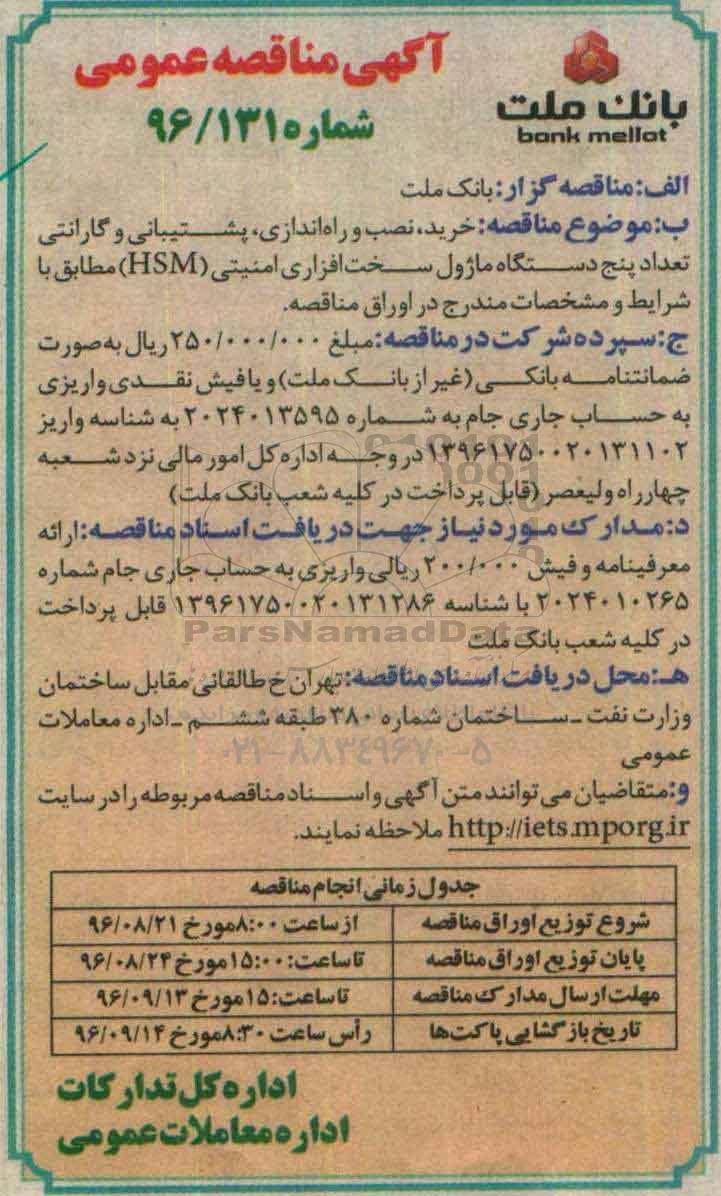 آگهی مناقصه عمومی
شماره ۹۶/۱۳۱
بانک ملت
bank mellat
الف: مناقصه گزار: بانک ملت
ب: موضوع مناقصه: خرید، نصب و راه‌اندازی، پشتیبانی و گارانتی
تعداد پنج دستگاه ماژول سخت‌افزاری امنیتی (HSM) مطابق با
شرایط و مشخصات مندرج در اوراق مناقصه.
ج: سپرده شرکت در مناقصه: مبلغ ۲۵۰/۰۰۰/۰۰۰ ریال به صورت
ضمانتنامه بانکی (غیر از بانک ملت) و یا فیش نقدی واریزی
به حساب جاری جام به شماره ۲۰۲۴۰۱۳۵۹۵ به شناسه واریز
۱۳۹۶۱۷۵۰۰۲۰۱۳۱۱۰۲ در وجه اداره کل امور مالی نزد شعبه
چهارراه ولیعصر (قابل پرداخت در کلیه شعب بانک ملت)
د: مدارک مورد نیاز جهت دریافت اسناد مناقصه: ارائه
معرفینامه و فیش ۲۰۰/۰۰۰ ریالی واریزی به حساب جاری جام شماره
۲۰۲۴۰۱۰۲۶۵ با شناسه ۱۳۹۶۱۷۵۰۰۲۰۱۳۱۲۸۶ قابل پرداخت
در کلیه شعب بانک ملت
ParsNamadData
هـ: محل دریافت اسناد مناقصه: تهران خ طالقانی مقابل ساختمان
وزارت نفت - ساختمان شماره ۳۸۰ طبقه ششم - اداره معاملات
عمومی
۰۲۱-۸۸۳۴۹۶۷۰-۵
و: متقاضیان می توانند متن آگهی و اسناد مناقصه مربوطه را در سایت
http://iets.mporg.ir ملاحظه نمایند.
جدول زمانی انجام مناقصه
شروع توزیع اوراق مناقصه از ساعت ۸:۰۰ مورخ ۹۶/۰۸/۲۱
پایان توزیع اوراق مناقصه تا ساعت: ۱۵:۰۰ مورخ ۹۶/۰۸/۲۴
مهلت ارسال مدارک مناقصه تا ساعت: ۱۵ مورخ ۹۶/۰۹/۱۳
تاریخ بازگشایی پاکت‌ها رأس ساعت ۸:۳۰ مورخ ۹۶/۰۹/۱۴
اداره کل تدارکات
اداره معاملات عمومی